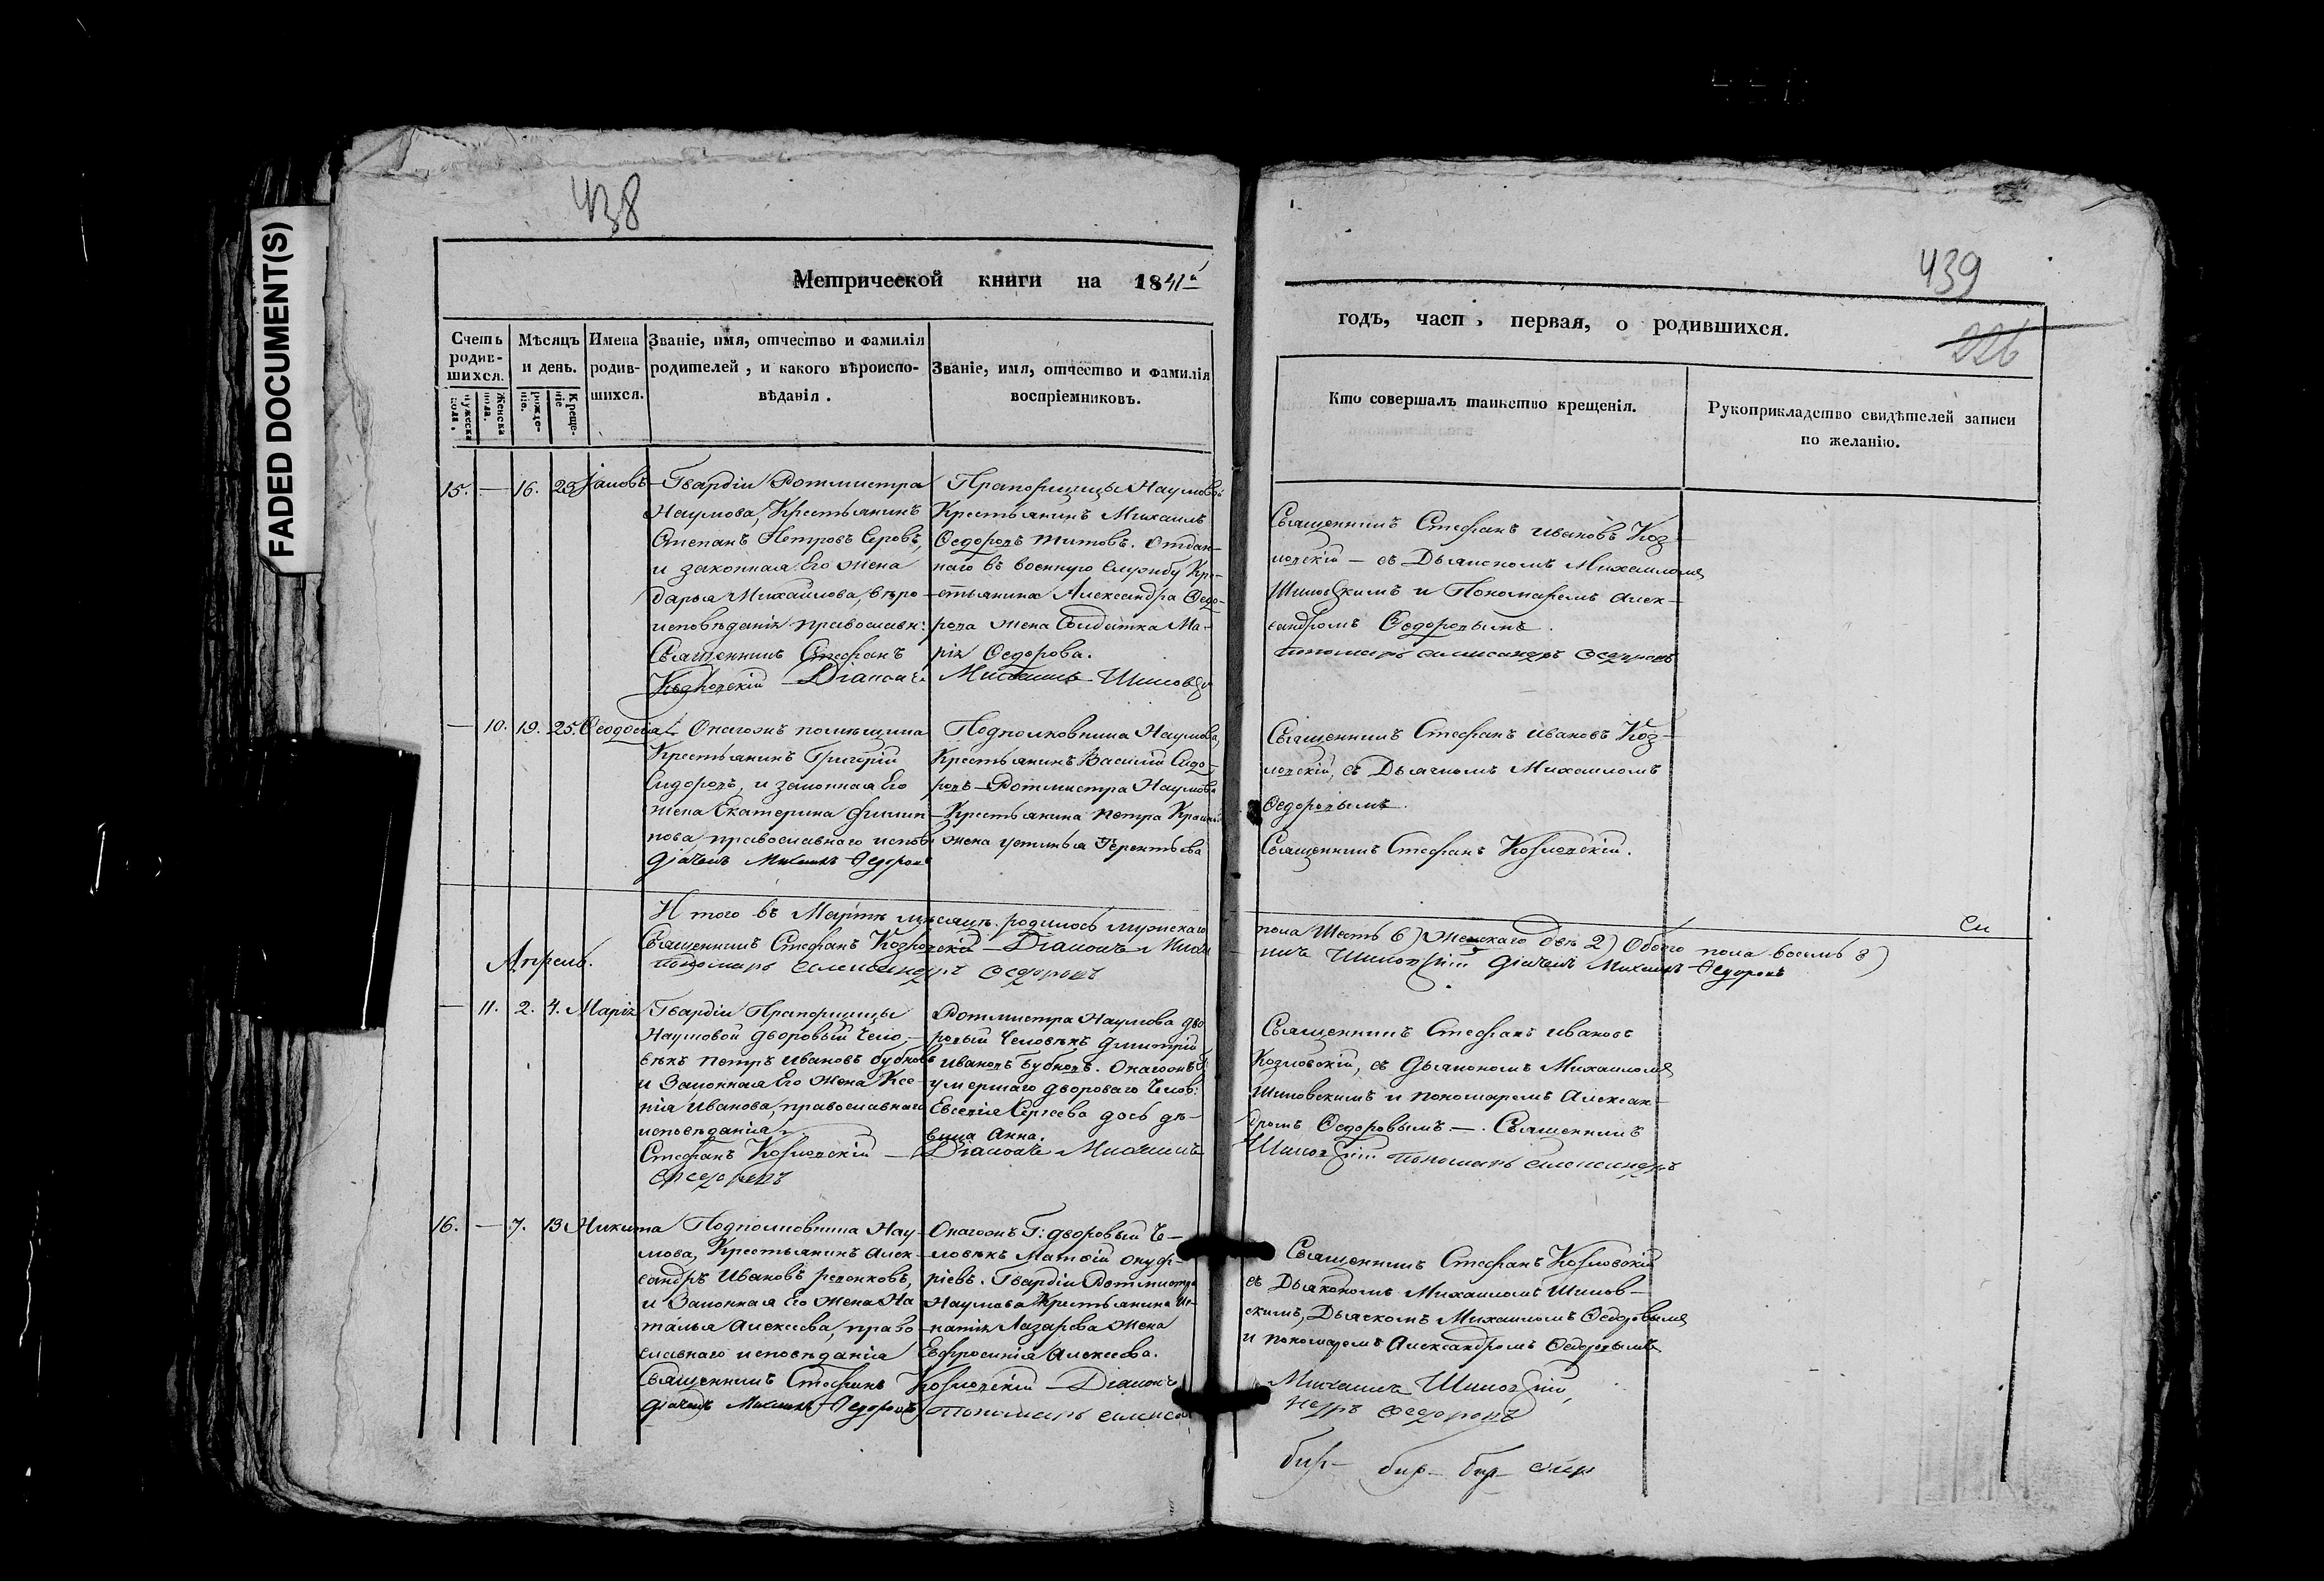 FADED DOCUMENT(S)
438
Метрической книги на 1841й
Счетъ родив-шихся.
Мѣсяцъ и день.
Имена родив-шихся.
Званіе, имя, отчество и фамилія родителей, и какого вѣроиспо-вѣданія.
Званіе, имя, отчество и фамилія воспріемниковъ.
мужеска пола.
Женска пола.
рожде-ніе.
Креще-ніе
15. — 16. 23 Іаковъ
Гвардіи Ротмистра
Наумова, Крестьянинъ
Степанъ Петровъ Серовъ,
и законная Его жена
Дарья Михайлова, вѣро-
исповѣданія православн:
Священникъ Стефанъ
Козловскій Діаконъ
Прапорщицы Наумовой
Крестьянинъ Михаилъ
Ѳедоровъ Титовъ. Отдан-
наго въ военную службу Кре-
стьянина Александра Ѳедо-
рова жена Солдатка Ма-
рія Ѳедорова.
Михаилъ Шиловскій
— 10. 19. 25. Ѳеодосія
Онагожъ помѣщика
Крестьянинъ Григорій
Сидоровъ, и законная Его
жена Екатерина Филип-
пова, православнаго исповѣ
Дьячекъ Михаилъ Ѳедоровъ
Подполковника Наумова,
Крестьянинъ Василій Сидо-
ровъ — Ротмистра Наумова
Крестьянина Петра
жена Устинья Терентьева
Итого въ Мартѣ мѣсяцѣ родилось мужескаго
Священникъ Стефанъ Козловскій Діаконъ Миха
пономарь Александръ Ѳедоровъ
Апрель.
— 11. 2. 4. Марія
Гвардіи Прапорщицы
Наумовой дворовый чело-
вѣкъ Петръ Ивановъ Бубновъ
и Законная Его жена Ксе-
нія Иванова, православнаго
исповѣданія
Стефанъ Козловскій —
Ѳедоровъ
Ротмистра Наумова дво
ровый человѣкъ Дмитрій
Ивановъ Бубновъ. Онагожъ Г:
умершаго двороваго Челов:
Евсевія Сергеева дочь дѣ-
вица Анна.
Діаконъ Михаилъ
16. — 7. 13 Никита
Подполковника Нау-
мова, Крестьянинъ Алек-
сандръ Ивановъ
и Законная Его жена На
талья Алексеева, право
славнаго исповѣданія
Священникъ Стефанъ
Дьячекъ Михаилъ Ѳедоровъ
Онагожъ Г: дворовый Че-
ловѣкъ Матвѣй Онуф-
ріевъ. Гвардіи Ротмистра
Наумова Крестьянина Иг-
натія Лазарева жена
Евфросинія Алексеева.
Козловскій Діаконъ
Пономарь Алекса
439
226
годъ, часть первая, о родившихся.
Кто совершалъ таинство крещенія.
Рукоприкладство свидѣтелей записи по желанію.
Священникъ Стефанъ Ивановъ Коз-
ловскій — съ Дьякономъ Михаиломъ
Шиловскимъ и Пономаремъ Алек-
сандромъ Ѳедоровымъ.
пономарь Александръ Ѳедоровъ
Священникъ Стефанъ Ивановъ Коз-
ловскій, съ Дьячкомъ Михаиломъ
Ѳедоровымъ.
Священникъ Стефанъ Козловскій.
пола Шесть 6) Женскаго двѣ 2) Обоего пола восемь 8)
илъ Шиловскій Дьячекъ Михаилъ Ѳедоровъ
Священникъ Стефанъ Ивановъ
Козловскій, съ Дьякономъ Михаиломъ
Шиловскимъ и пономаремъ Алексан-
дромъ Ѳедоровымъ. — Священникъ
Шиловскій пономарь Александръ
Священникъ Стефанъ Козловскій
съ Дьякономъ Михаиломъ Шилов-
скимъ, Дьячкомъ Михаиломъ Ѳедоровымъ
и пономаремъ Александромъ Ѳедоровымъ
Михаилъ Шиловскій,
ндръ Ѳедоровъ